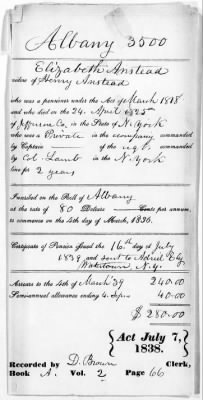 Albany 3500
Elizabeth Anstead
widow of Henry Anstead
who was a pensioner under the Act of March 1818
and who died on the 24. April 1825
of Jefferson Co, in the State of N. York
who was a Private in the company commanded
by Captain — of the regt. commanded
by Col. Lamb in the N. York
line for 2 years
Inscribed on the Roll of Albany
at the rate of 80 Dollars — Cents per annum,
to commence on the 4th day of March, 1836.
Certificate of Pension issued the 16th day of July
1839 and sent to
Watertown, N.Y.
Arrears to the 4th of March '39 240.00
Semi-annual allowance ending 4 Sep. 40.00
$ 280.00
{Act July 7, 1838.}
Recorded by D. Brown Clerk,
Book A. Vol. 2 Page 66